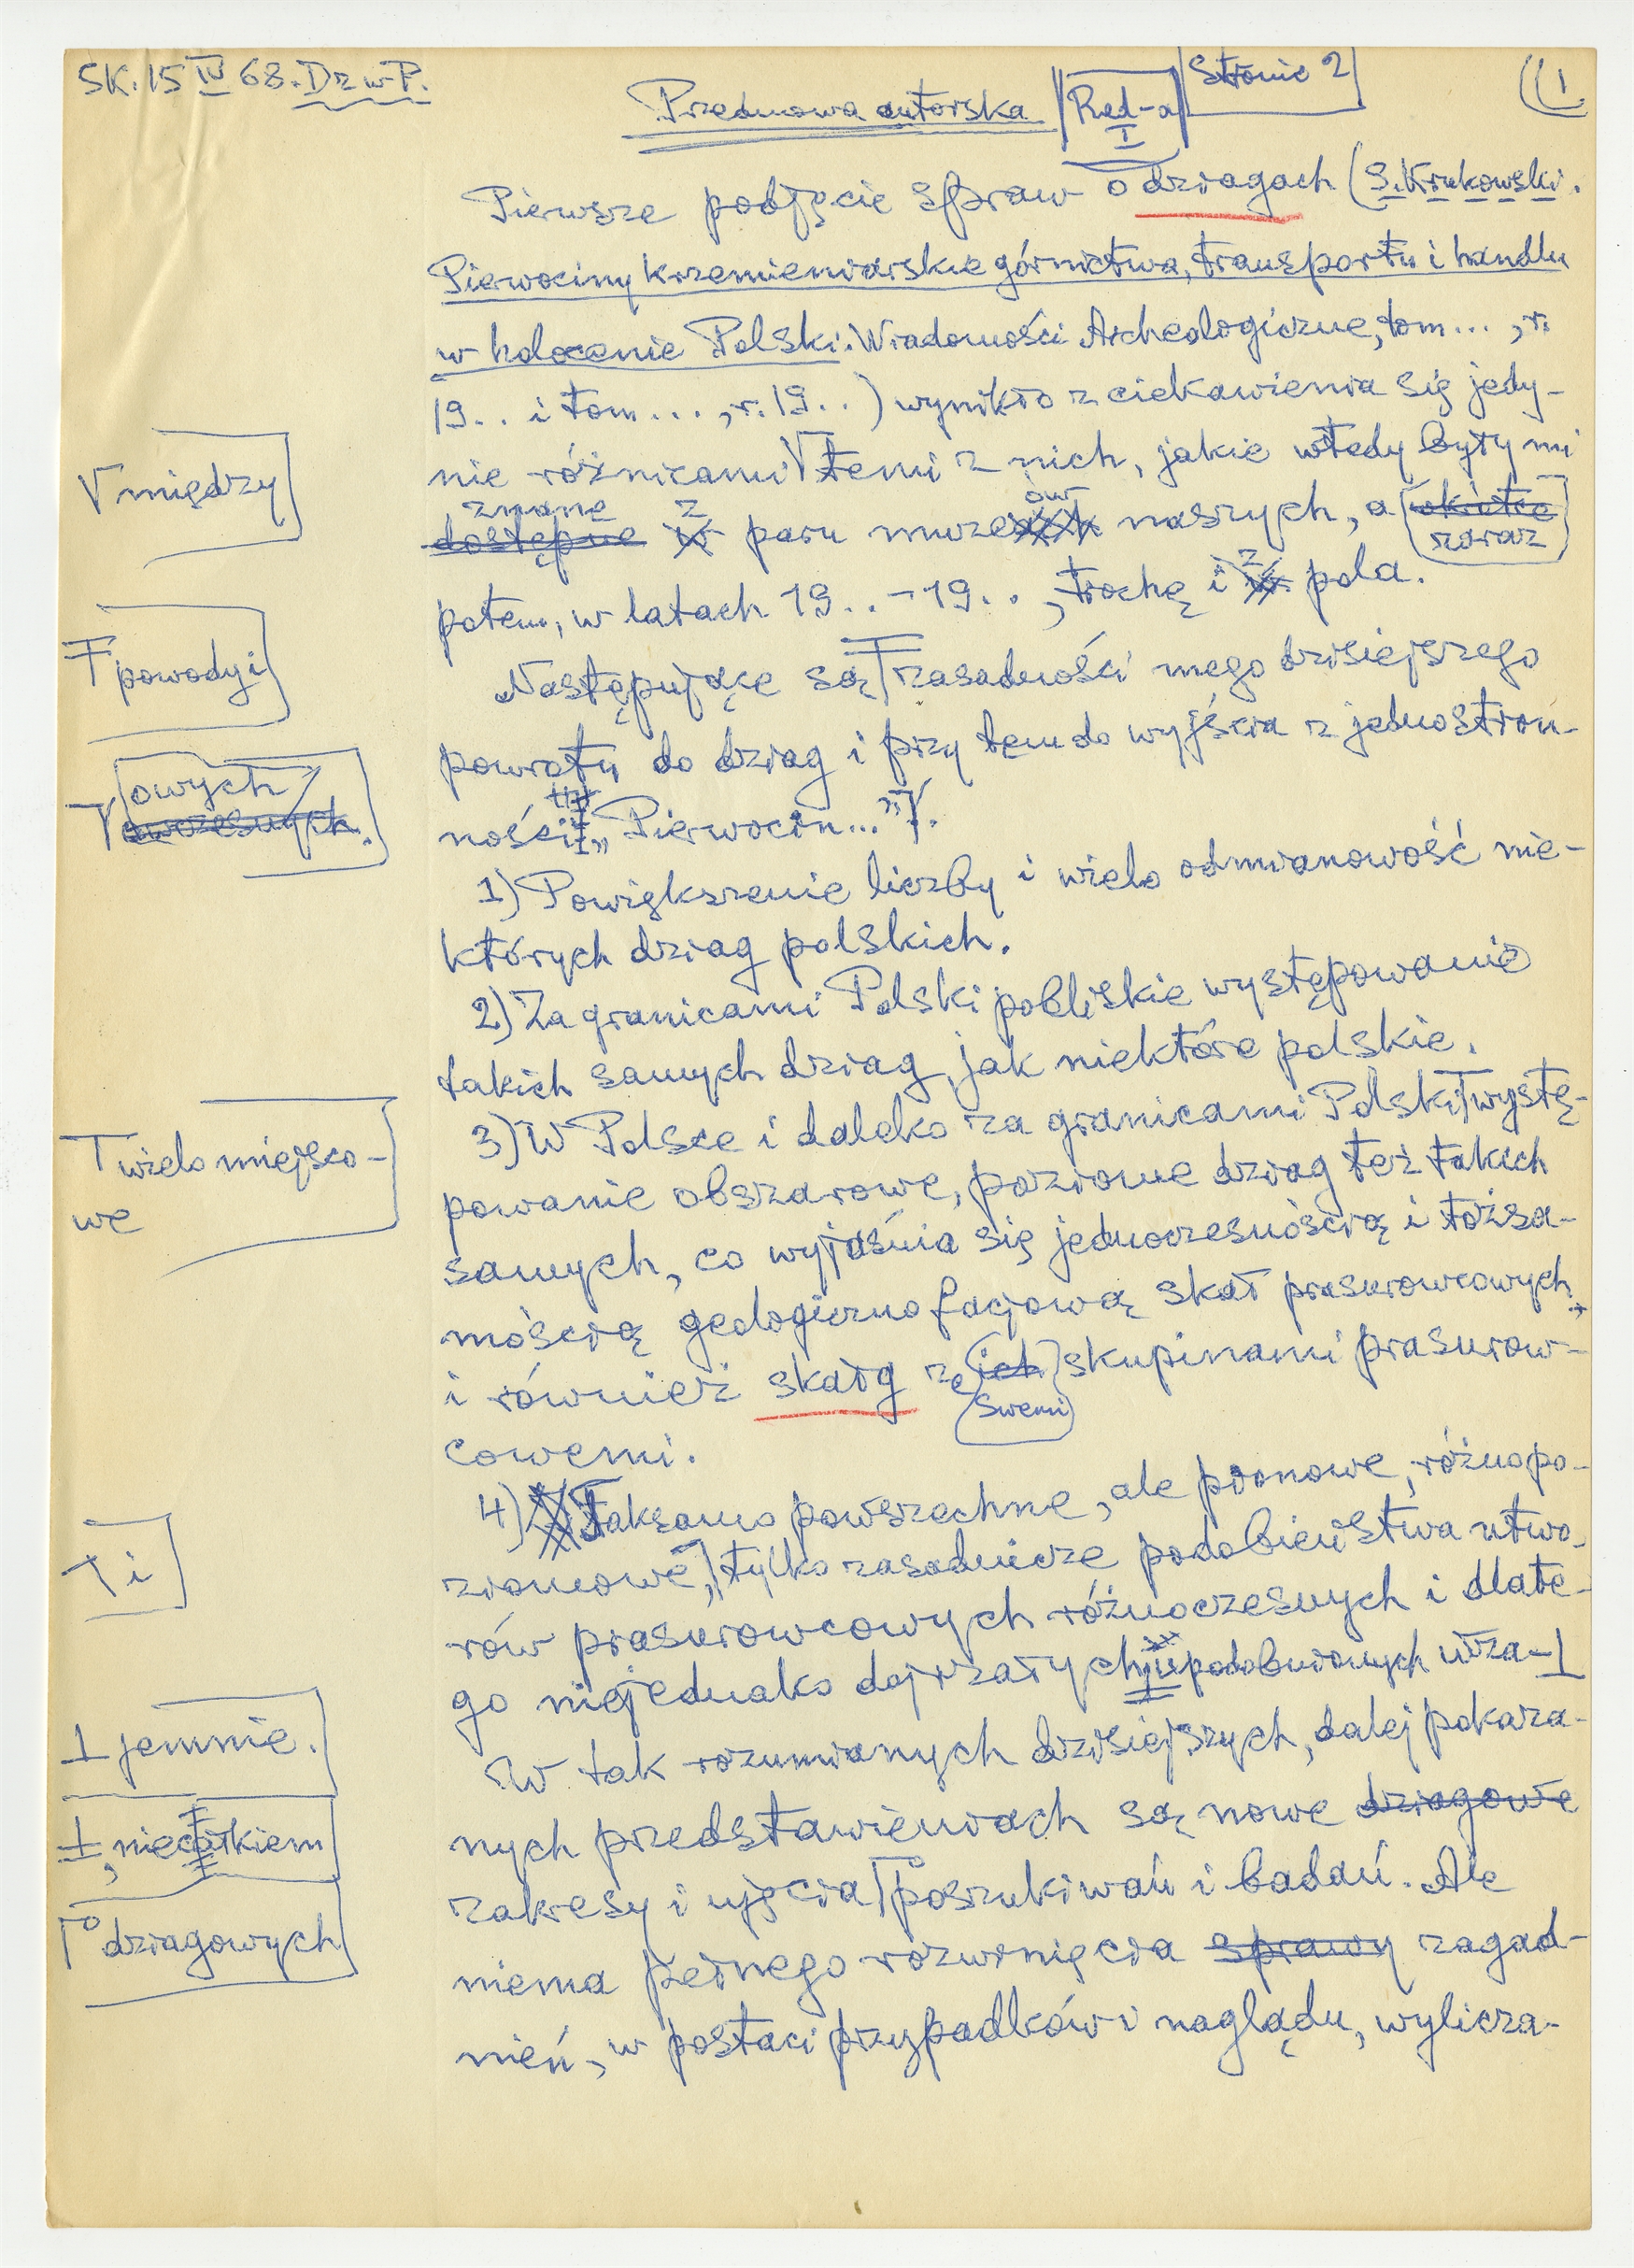 SK. 15 IV 68. Dz w P.
Przedmowa autorska Red-a I Stronic 2 (1.
Pierwsze podjęcie spraw o dziagach (S. Krukowski.
Pierwociny krzemieniarskie górnictwa, transportu i handlu
w holocenie Polski. Wiadomości Archeologiczne, tom..., r.
19.. i tom..., r. 19..) wynikło z ciekawienia się jedy-
V między
nie różnicami V temi z nich, jakie wtedy były mi
znane z ów
dostępne w paru muzeach naszych, a wkrótce
zaraz
potem, w latach 19..-19.., trochę i z pola.
T powody i
Następujące są T zasadności mego dzisiejszego
powrotu do dziag i przy tem do wyjścia z jednostron-
owych
ności „Pierwocin...”.
1) Powiększenie liczby i wielo odmianowość nie-
których dziag polskich.
2) Za granicami Polski pobliskie występowanie
takich samych dziag, jak niektóre polskie.
3) W Polsce i daleko za granicami Polski T wystę-
T wielo miejsco-
we
powanie obszarowe, poziome dziag też takich
samych, co wyjaśnia się jednoczesnością i tożsa-
mością geologiczno facjową skał prasurowcowych
i również skałg ze ich skupinami prasurow-
swemi
cowemi.
4) Taksamo powszechne, ale pionowe, różnopo-
T i
ziomowe, tylko zasadnicze podobieństwa utwo-
rów prasurowcowych różnoczesnych i dlate-
go niejednako dojrzałych upodobnionych wza-⊥
⊥ jemnie.
W tak rozumianych dzisiejszych, dalej pokaza-
nych przedstawieniach są nowe dziagowe
±, niecałkiem
zakresy i ujęcia Γ° poszukiwań i badań. Ale
Γ° dziagowych
niema pełnego rozwinięcia sprawy zagad-
nień, w postaci przypadków i naglądu, wylicza-